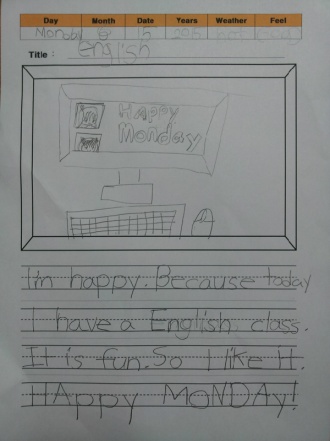 Day Month Date Years Weather Feel
Monday 5
Title : English
Happy
Monday
I'm happy. Because today
I have a English class.
It is fun. So I like it.
HAppy MoNDAy!